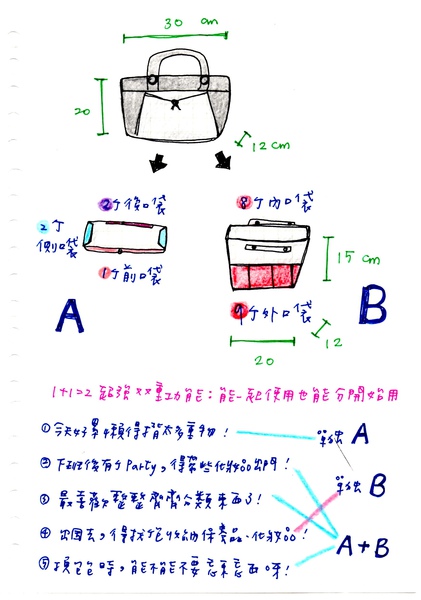 30 cm
20
12 cm
2个後口袋
2个側口袋
1个前口袋
A
8个內口袋
15 cm
9个外口袋
12
20
B
1+1=2 超強双重功能：能一起使用也能分開始用
①今天好累懶得揹太多重物！
單出 A
②下班後有个Party，得帶些化妝品出門！
單出 B
③最喜歡整整齊齊分類東西了！
④出國去，得找包放的保養品、化妝品！
A+B
⑤換包時，能不能不要忘東忘西呀！